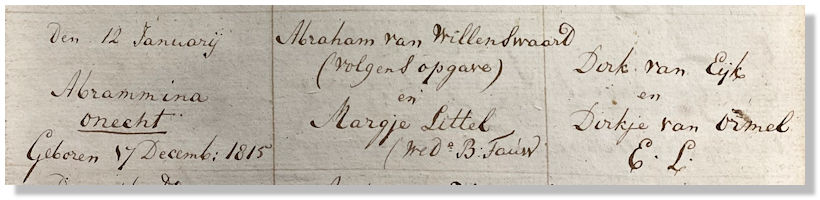 Den 12 Januarij
Abrammina
onecht
Geboren 17 Decemb: 1815
Abraham van Willenswaard
(volgens opgave)
en
Margje Littel
(wed.e B: Fauw
Dirk van Eijk
en
Dirkje van Ormel
E. L.